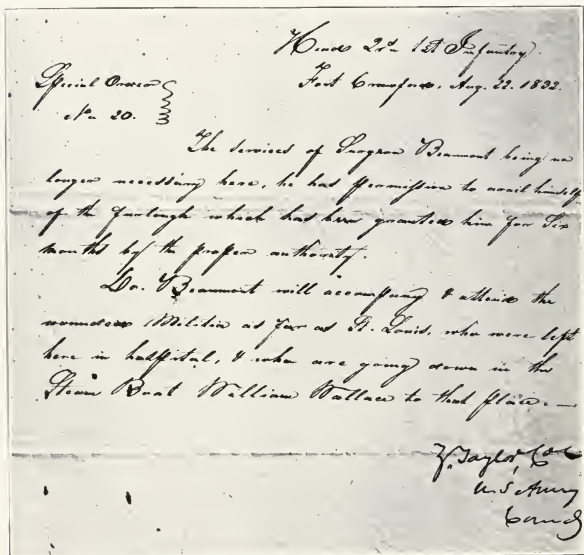 Head Qrs. 1st Infantry.
Fort Crawford, Aug. 22. 1832.
Special Order
No 20.
The services of Surgeon Beaumont being no
longer necessary here, he has permission to avail himself
of the furlough which has been granted him for Six
months by the proper authority.
Do. Beaumont will accompany & attend the
wounded Militia as far as St. Louis, who were left
here in hospital, & who are going down in the
Steam Boat William Wallace to that place. —
Z. Taylor, Col
U.S. Army
Comdg